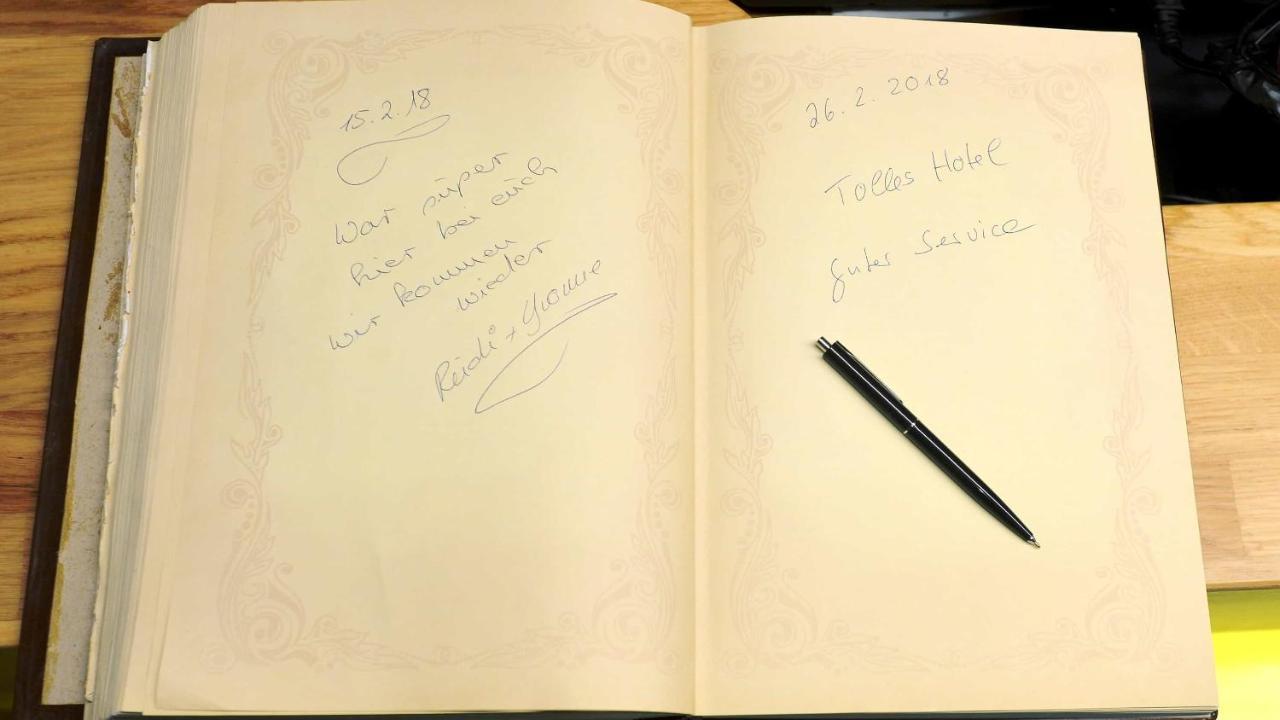 15.2.18
War super
hier bei euch
wir kommen
wieder
Reidi + Yvonne
26.2.2018
Tolles Hotel
guter Service